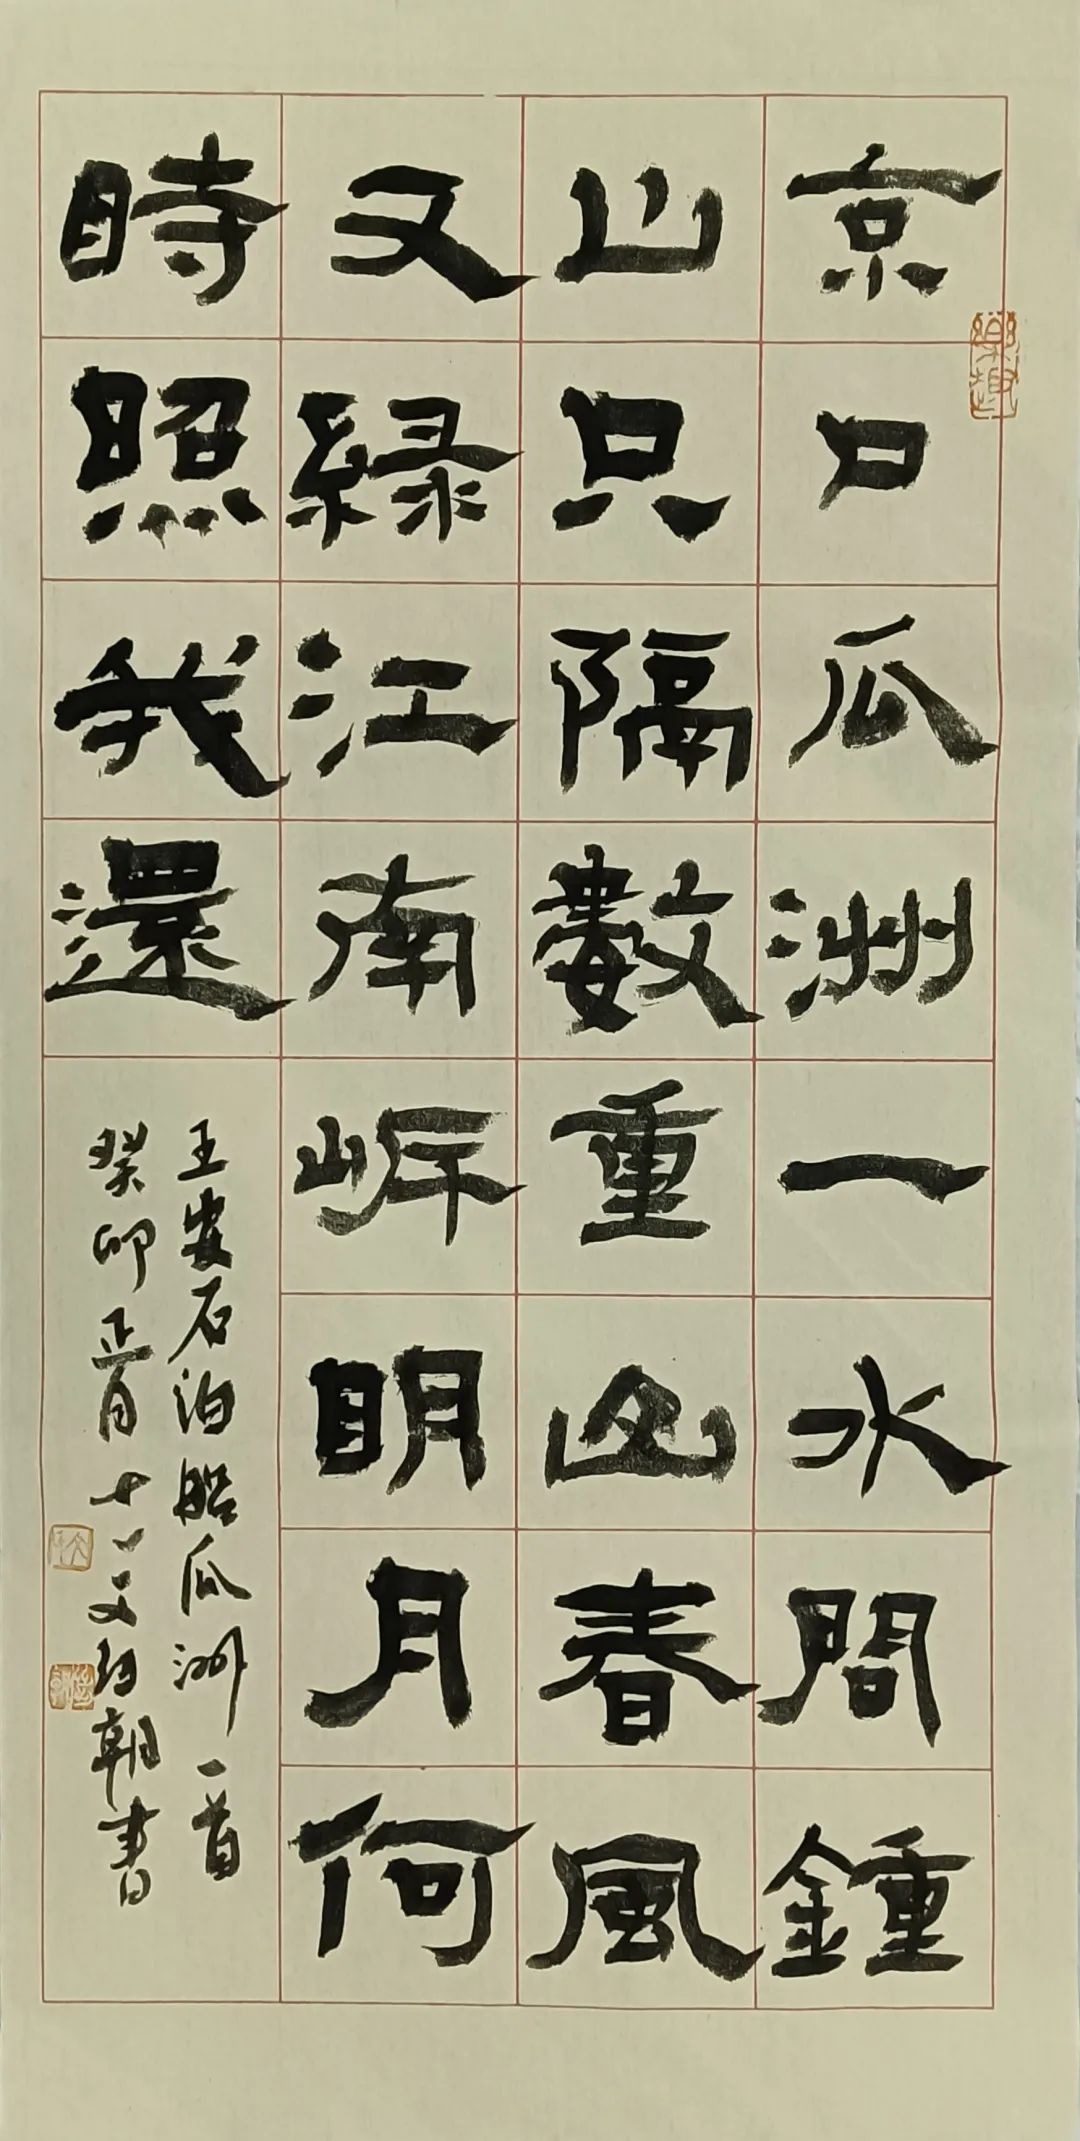 京口瓜洲一水問鍾
山只隔數重山春風
又緑江南岸明月何
時照我還
王安石泊船瓜洲一首
癸卯正月十一文朝書